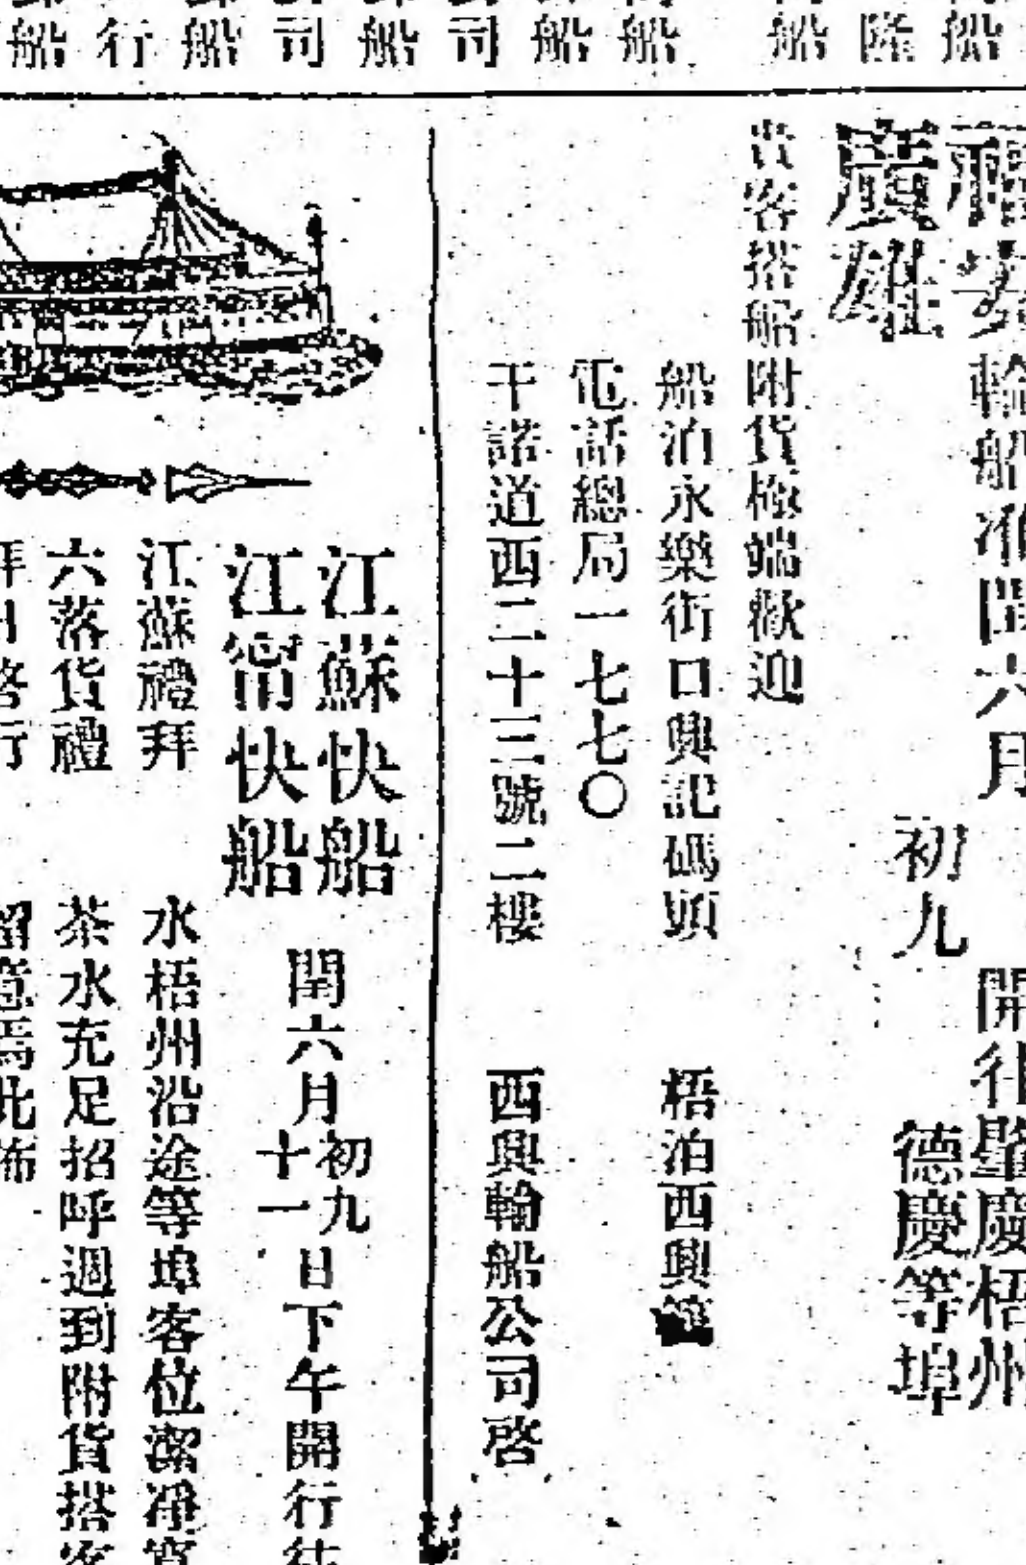 船
隆
船
船
船
司
船
司
船
行
船
福安
廣雄
輪船准閏六月
初九
開往肇慶梧州
德慶等埠
貴客搭船附貨極端歡迎
船泊永樂街口興記碼頭 梧泊西興
電話總局一七七〇
干諾道西二十三號二樓 西興輪船公司啓
江蘇快船
江甯快船
閏六月初九十一日下午開行往
江蘇禮拜
六落貨禮
拜日啓行
水梧州沿途等埠客位潔凈寬
茶水充足招呼週到附貨搭客
留意焉此佈